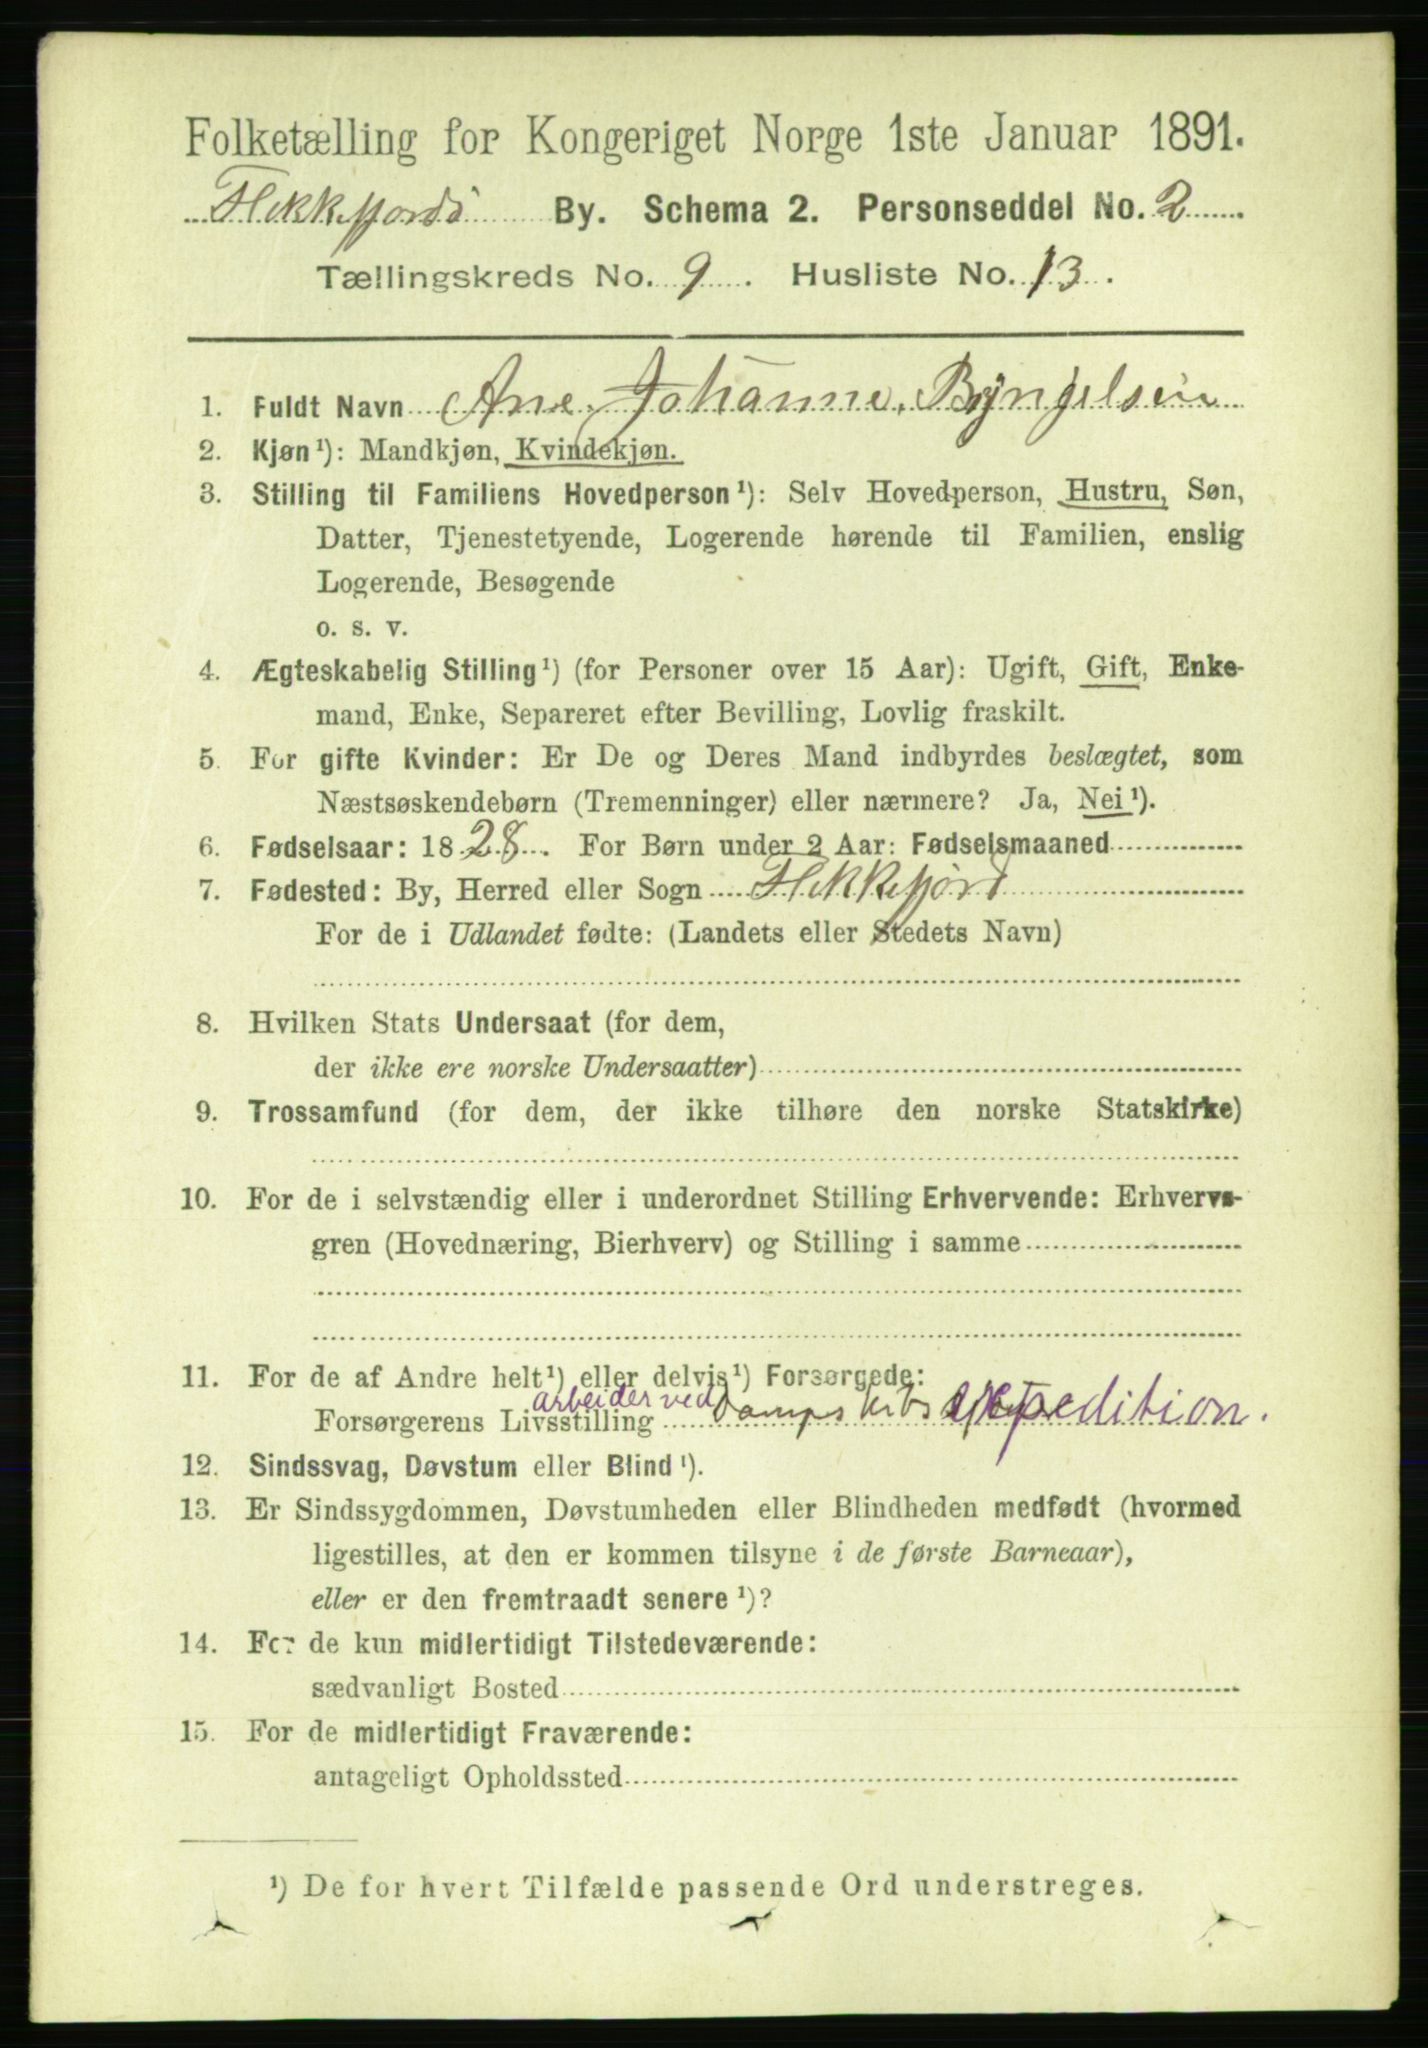 Folketælling for Kongeriget Norge 1ste Januar 1891.
Flekkefjords By. Schema 2. Personseddel No. 2
Tællingskreds No. 9. Husliste No. 13.
1. Fuldt Navn Ane Johanne Byngelsen
2. Kjøn ¹): Mandkjøn, Kvindekjøn.
3. Stilling til Familiens Hovedperson ¹): Selv Hovedperson, Hustru, Søn,
Datter, Tjenestetyende, Logerende hørende til Familien, enslig
Logerende, Besøgende
o. s. v.
4. Ægteskabelig Stilling ¹) (for Personer over 15 Aar): Ugift, Gift, Enke-
mand, Enke, Separeret efter Bevilling, Lovlig fraskilt.
5. For gifte Kvinder: Er De og Deres Mand indbyrdes beslægtet, som
Næstsøskendebørn (Tremenninger) eller nærmere? Ja, Nei ¹).
6. Fødselsaar: 1828. For Børn under 2 Aar: Fødselsmaaned
7. Fødested: By, Herred eller Sogn Flekkefjord
For de i Udlandet fødte: (Landets eller Stedets Navn)
8. Hvilken Stats Undersaat (for dem,
der ikke ere norske Undersaatter)
9. Trossamfund (for dem, der ikke tilhøre den norske Statskirke)
10. For de i selvstændig eller i underordnet Stilling Erhvervende: Erhvervs-
gren (Hovednæring, Bierhverv) og Stilling i samme
11. For de af Andre helt ¹) eller delvis ¹) Forsørgede:
arbeider ved
Forsørgerens Livsstilling Dampskibsexpedition.
12. Sindssvag, Døvstum eller Blind ¹).
13. Er Sindssygdommen, Døvstumheden eller Blindheden medfødt (hvormed
ligestilles, at den er kommen tilsyne i de første Barneaar),
eller er den fremtraadt senere ¹)?
14. For de kun midlertidigt Tilstedeværende:
sædvanligt Bosted
15. For de midlertidigt Fraværende:
antageligt Opholdssted
¹) De for hvert Tilfælde passende Ord understreges.